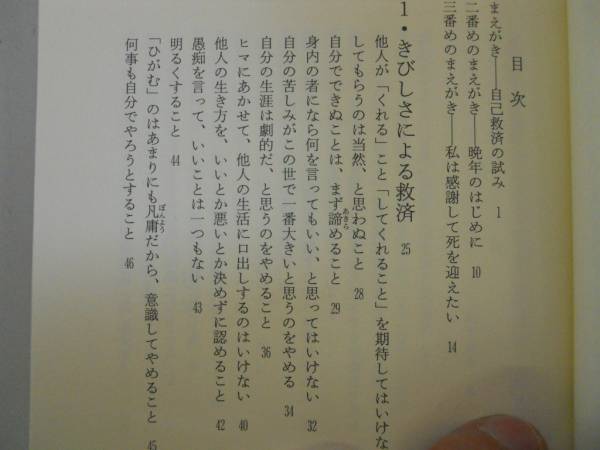 目次
まえがき――自己救済の試み 1
二番めのまえがき――晩年のはじめに 10
三番めのまえがき――私は感謝して死を迎えたい 14
1・きびしさによる救済 25
他人が「くれる」こと「してくれること」を期待してはいけな
してもらうのは当然、と思わぬこと 28
自分でできぬことは、まず諦めること 29
身内の者になら何を言ってもいい、と思ってはいけない 32
自分の苦しみがこの世で一番大きいと思うのをやめる 34
自分の生涯は劇的だ、と思うのをやめること 36
ヒマにあかせて、他人の生活に口出しするのはいけない 40
他人の生き方を、いいとか悪いとか決めずに認めること 42
愚痴を言って、いいことは一つもない 43
明るくすること 44
「ひがむ」のはあまりにも凡庸だから、意識してやめること 45
何事も自分でやろうとすること 46